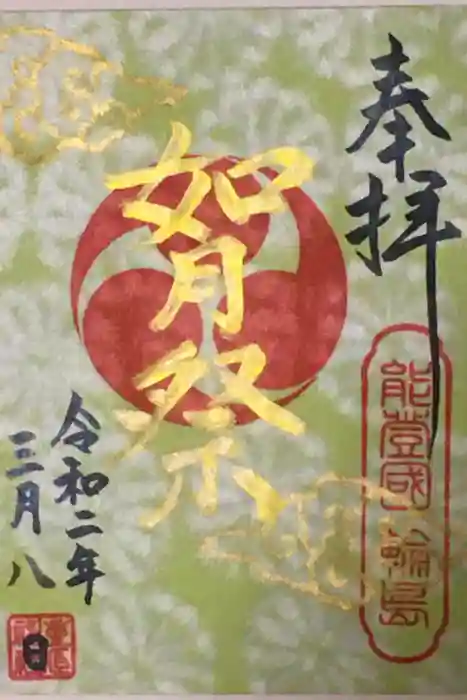 奉拝
能登國 輪島
如月祭
令和二年
三月八
日